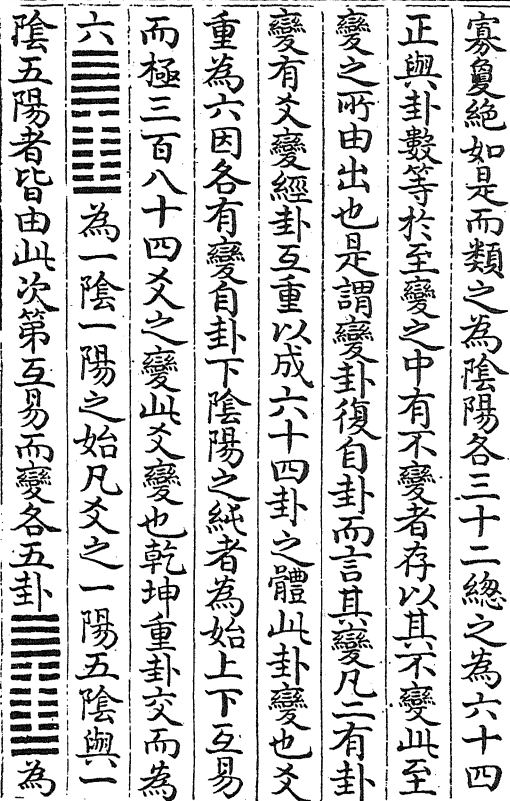 寡夐絶如是而類之為陰陽各三十二緫之為六十四
正與卦數等於至變之中有不變者存以其不變此至
變之所由出也是謂變卦復自卦而言其變凡二有卦
變有爻變經卦互重以成六十四卦之體此卦變也爻
重為六因各有變自卦下陰陽之純者為始上下互易
而極三百八十四爻之變此爻變也乾坤重卦交而為
六䷫䷗為一陰一陽之始凡爻之一陽五陰與一
陰五陽者皆由此次第互易而變各五卦䷠䷒為